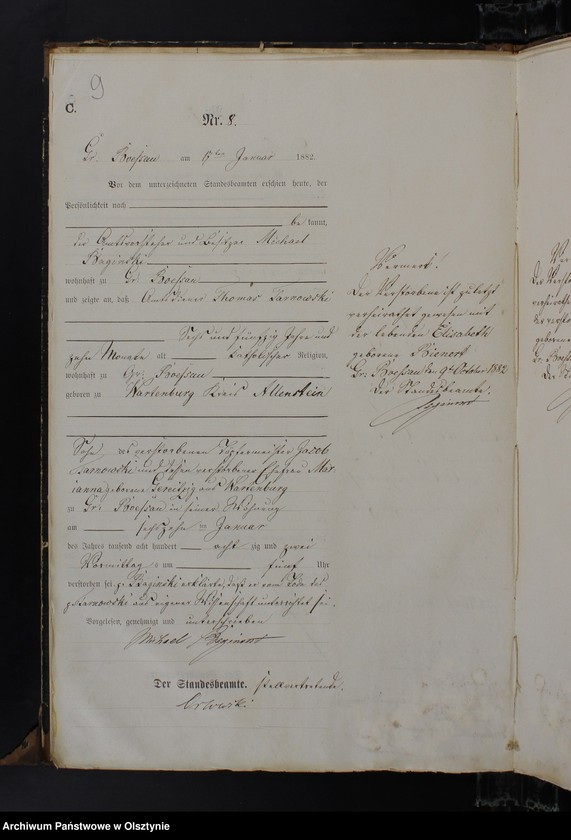 9
C.
Nr. 8.
Gr. Boessau am Januar 1882.
Vor dem unterzeichneten Standesbeamten erschien heute, der
Persönlichkeit nach
be kannt,
der Amtsvorsteher und Besitzer Michael
Baginski
wohnhaft zu Gr. Boessau
und zeigte an, daß Amtsdiener Thomas Zarnowski
Sechs und fünfzig Jahre und
zehn Monate alt katholischer Religion,
wohnhaft zu Gr. Boessau
geboren zu Wartenburg Kreis Allenstein
Sohn des verstorbenen Töpfermeister Jacob
Zarnowski und dessen verstorbenen Ehefrau Mar
ianna geborene aus Wartenburg
zu Gr. Boessau in seiner Wohnung
am Januar
des Jahres tausend acht hundert acht zig und zwei
Vormittag s um fünf Uhr
verstorben sei. p. Baginski erklärte, daß er vom Tode des
p. Zarnowski aus eigener Wissenschaft unterrichtet sei.
Vorgelesen, genehmigt und unterschrieben
Michael
Der Standesbeamte. stellvertretende.
Vermerk!
Der Verstorbene ist zuletzt
verheirathet gewesen mit
der lebenden Elisabeth
geborene Bienert
Gr. Boessau den 9t October 1882
Der Standesbeamte.
Archiwum Państwowe w Olsztynie